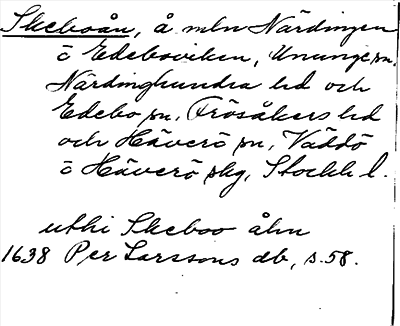 Skeboån, å mln Närdingen
o Edeboviken, Ununge sn,
Närdinghundra hd och
Edebo sn, Frösåkers hd
och Häverö sn, Väddö
o Häverö skg, Stockh l.
uthi Skeboo åhn
1638 Per Larssons db, s. 58.